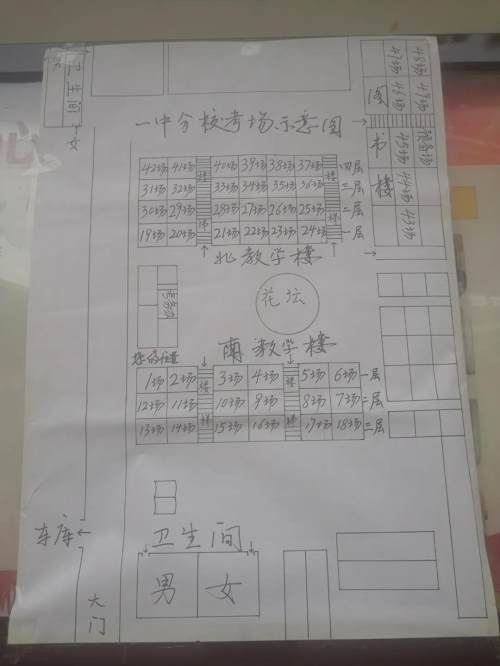 卫生间
女
一中分校考场示意图
图书楼
47场 48场
46场 49场
45场 准备场
44场
43场
42场 41场 楼 40场 39场 38场 37场 楼 四层
31场 32场 33场 34场 35场 36场 三层
30场 29场 28场 27场 26场 25场 二层
19场 20场 梯 21场 22场 23场 24场 梯 一层
北教学楼
考务办
花坛
您的位置
南教学楼
1场 2场 楼 3场 4场 楼 5场 6场 一层
12场 11场 10场 9场 8场 7场 二层
13场 14场 梯 15场 16场 梯 17场 18场 三层
车库
卫生间
男 女
大门